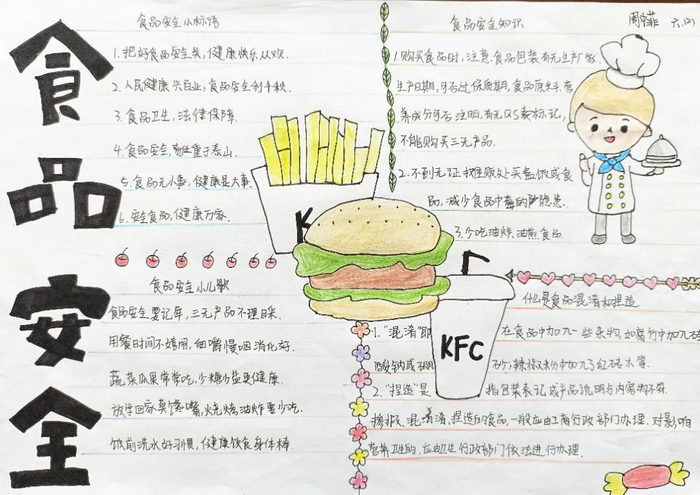 食品安全
食品安全小标语
1.把好食品安全关,健康快乐从欢.
2.人民健康兴百业,食品安全利千秋.
3.食品卫生,法律保障.
4.食品安全,责任重于泰山.
5.食品无小事,健康是大事.
6.安全食品,健康万家.
食品安全小儿歌
食品安全要记牢,三无产品不理睬.
用餐时间不嬉闹,细嚼慢咽消化好.
蔬菜瓜果常常吃,少糖少盐更健康.
放学回家莫馋嘴,烧烤油炸要少吃.
饭前洗水好习惯,健康饮食身体棒.
食品安全知识
六.(2)
1.购买食品时,注意食品包装有无生产厂家、
生产日期,是否过保质期,食品原料、营
养成分是否注明,有无QS标记,
不能购买三无产品.
2.不到无证摊贩处买盒饭或食
品,减少食品中毒的隐患.
3.少吃油炸、油煎食品.
K
KFC
什么是食品混淆和捏造
1."混淆"即在食品中加入一些杂物,如腐竹中加入
酸钠或硼砂,辣椒粉中加入红砖木等.
2."捏造"是指包装表记或产品说明与内容物不符.
掺假、混淆、捏造的食品,一般应由工商行政部门办理.对影响
营养卫生的,应由卫生行政部门依法进行办理.